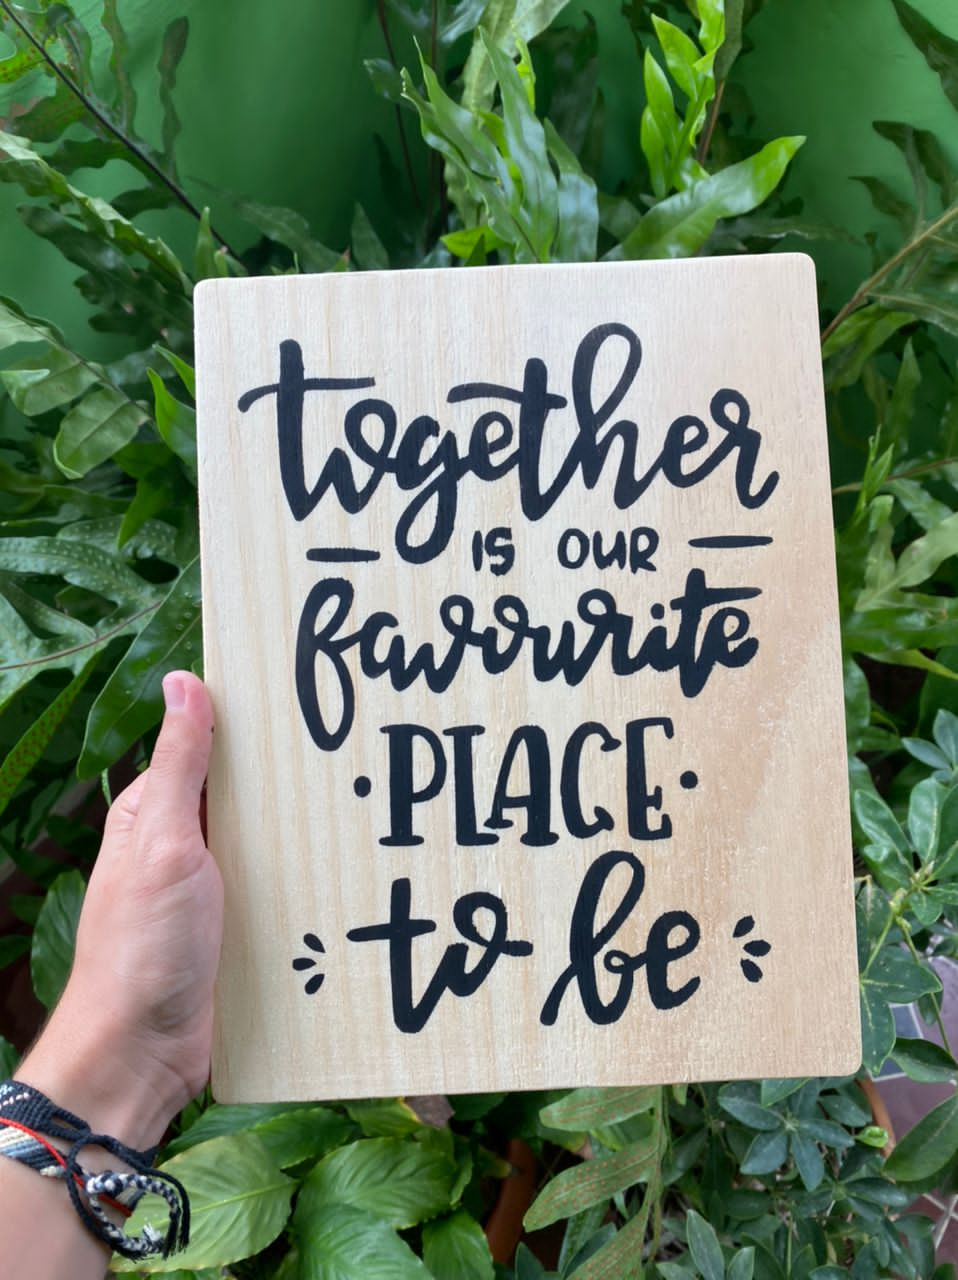 together
IS OUR
favourite
PLACE
to be